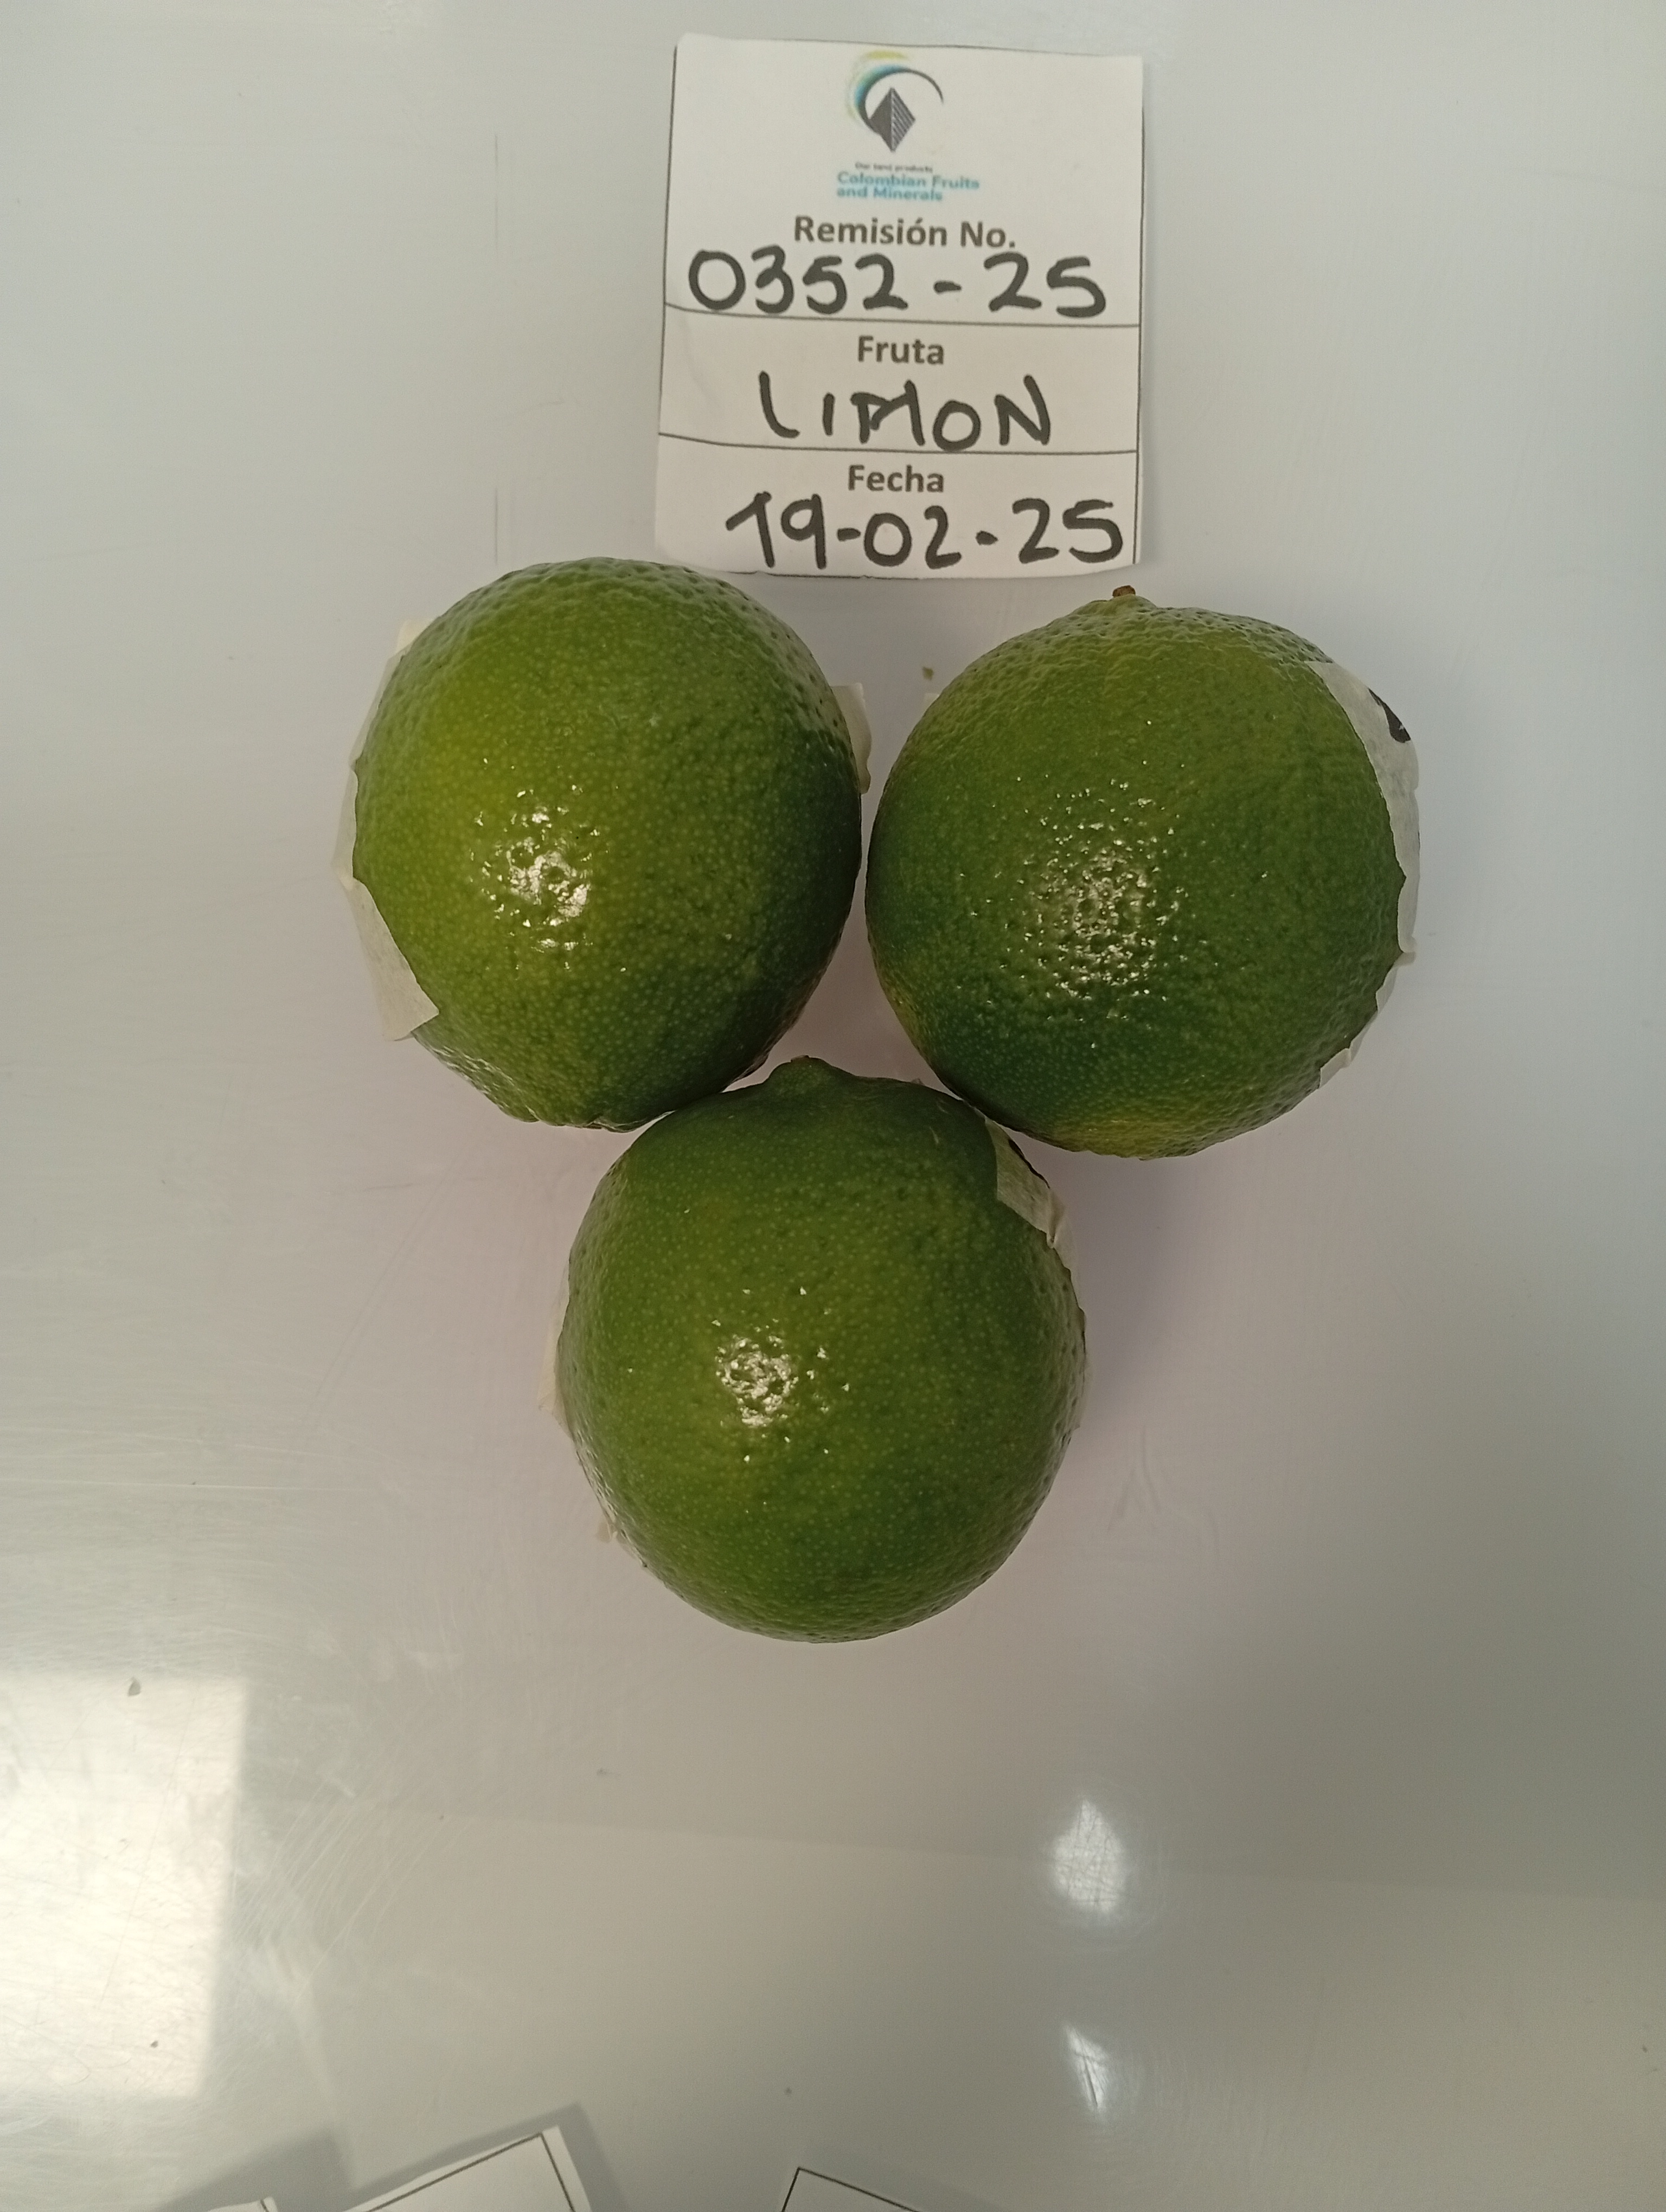 Our land products
Colombian Fruits
and Minerals
Remisión No.
0352-25
Fruta
LIMON
Fecha
19-02-25